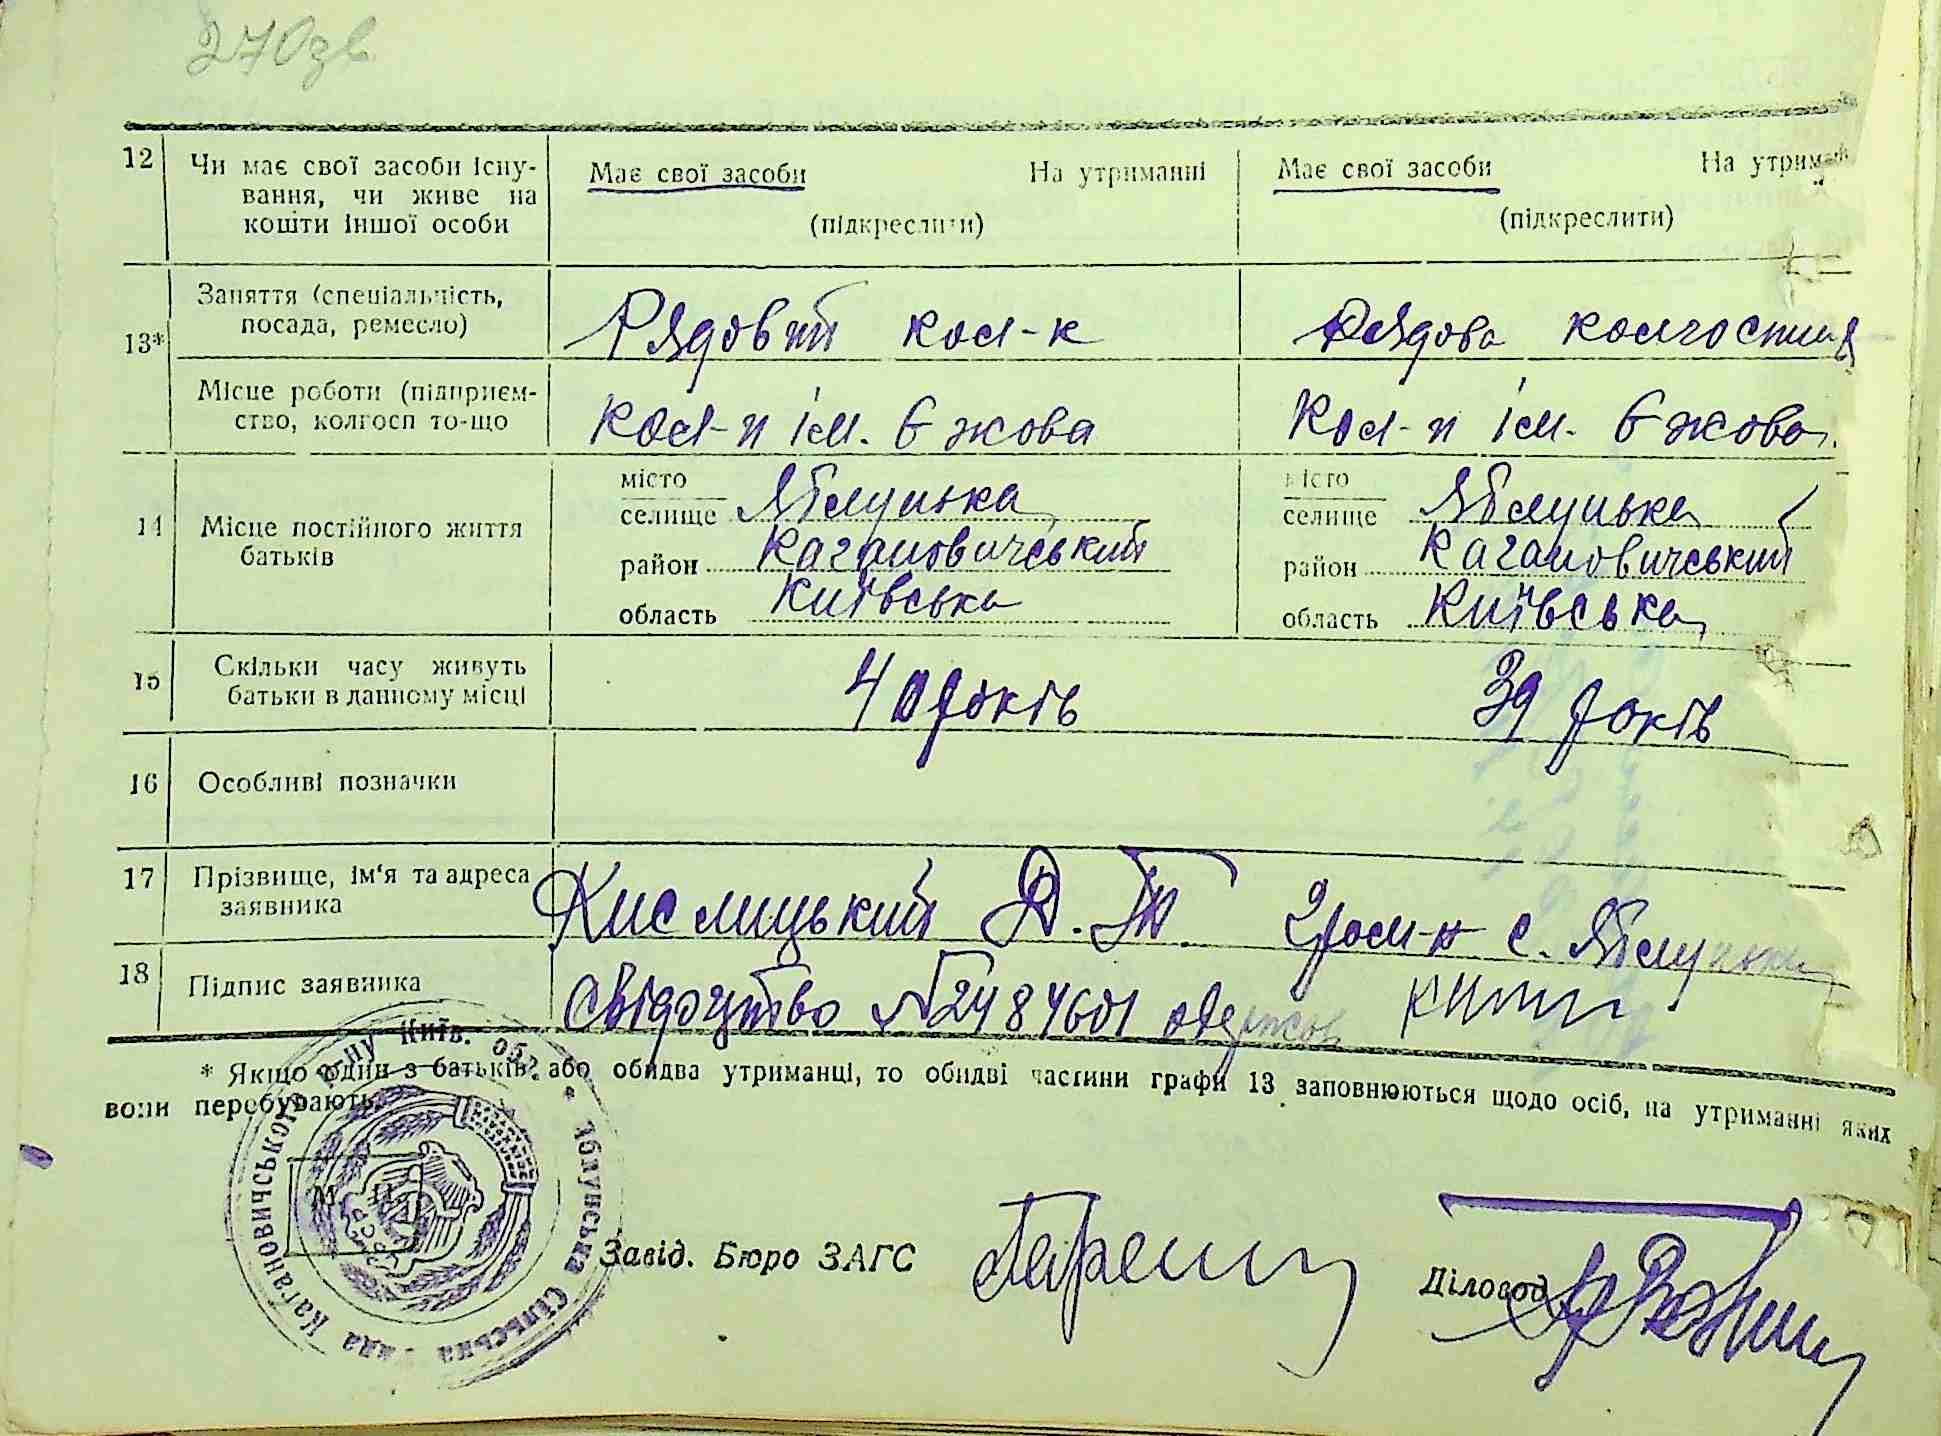 270зв
12 Чи має свої засоби існу- Має свої засоби На утриманні Має свої засоби На утрим
вання, чи живе на
кошти іншої особи (підкреслити) (підкреслити)
13* Заняття (спеціальність,
посада, ремесло) Рядовий кол-к Рядова колгоспниця
Місце роботи (підприєм-
ство, колгосп то-що Кол-п ім. Єжова Кол-п ім. Єжова
14 Місце постійного життя
батьків
місто місто
селище Яблунька селище Яблунька
район Кагановичський район Кагановичський
область Київська область Київська
15 Скільки часу живуть
батьки в данному місці 40 років 39 років
16 Особливі позначки
17 Прізвище, ім'я та адреса
заявника Кислицький Д. Т. гром-н с. Яблунька
18 Підпис заявника Свідоцтво №2484601 одержав
* Якщо один з батьків або обидва утриманці, то обидві частини графи 13 заповнюються щодо осіб, на утриманні яких
вони перебувають.
Яблунська Сільська Рада Кагановичського р-ну Київ. обл.
М. П.
УРСР
Завід. Бюро ЗАГС Діловод